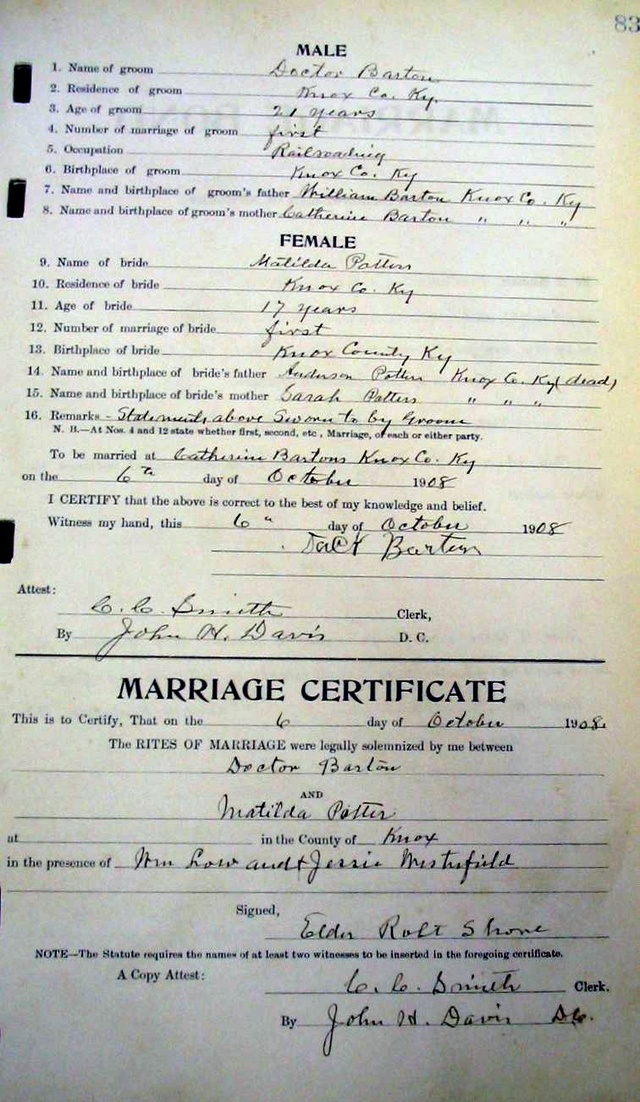 83
MALE
1. Name of groom Doctor Barton
2. Residence of groom Knox Co. Ky.
3. Age of groom 21 years
4. Number of marriage of groom first
5. Occupation Railroading
6. Birthplace of groom Knox Co. Ky
7. Name and birthplace of groom's father William Barton Knox Co. Ky
8. Name and birthplace of groom's mother Catherine Barton " " "
FEMALE
9. Name of bride Matilda Potters
10. Residence of bride Knox Co. Ky
11. Age of bride 17 years
12. Number of marriage of bride first
13. Birthplace of bride Knox County Ky
14. Name and birthplace of bride's father Anderson Potters Knox Co. Ky (dead)
15. Name and birthplace of bride's mother Sarah Potters " " "
16. Remarks - Statements above Sworn to by Groom
N. B.—At Nos. 4 and 12 state whether first, second, etc., Marriage, of each or either party.
To be married at Catherine Bartons Knox Co. Ky
on the 6th day of October 1908
I CERTIFY that the above is correct to the best of my knowledge and belief.
Witness my hand, this 6 " day of October 1908
Jack Barton
Attest:
C. C. Smith Clerk,
By John H. Davis D. C.
MARRIAGE CERTIFICATE
This is to Certify, That on the 6 day of October 1908.
The RITES OF MARRIAGE were legally solemnized by me between
Doctor Barton
AND
Matilda Potter
at in the County of Knox
in the presence of Wm Low and Jessie
Signed,
Elder Robt
NOTE—The Statute requires the names of at least two witnesses to be inserted in the foregoing certificate.
A Copy Attest: C. C. Smith Clerk.
By John H. Davis D.C.